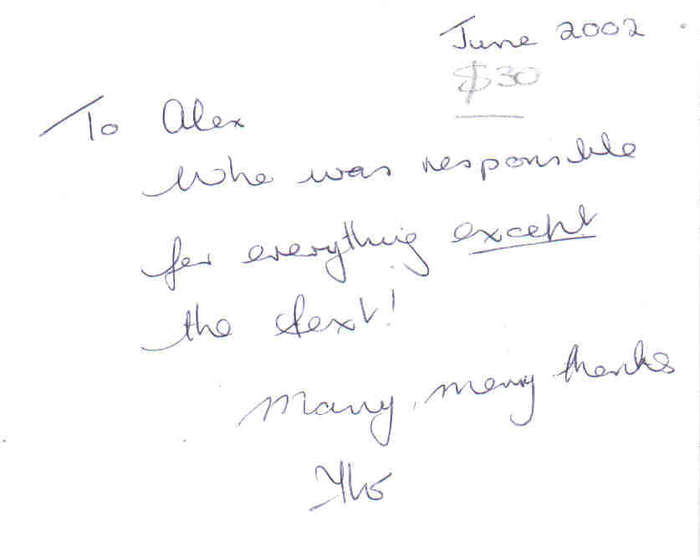 June 2002
$30
To Alex
Who was responsible
for everything except
the text!
Many, many thanks